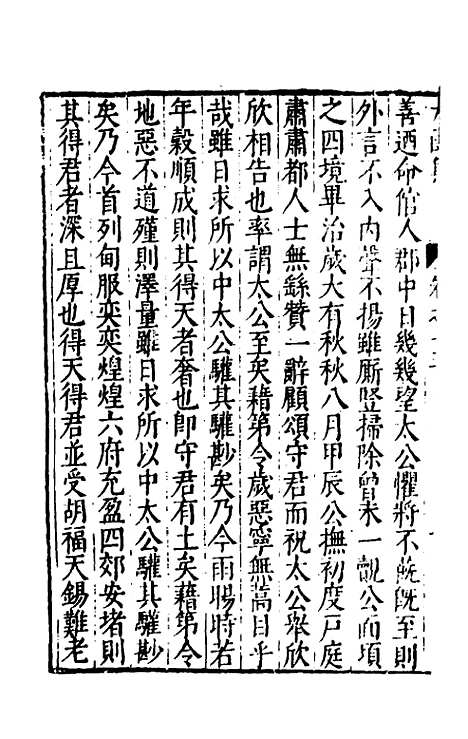 善迺命倌人郡中日幾幾望太公懼將不旣旣至則
外言不入内聲不揚雖廝豎掃除曾未一覿公面頃
之四境畢治歲大有秋秋八月甲辰公撫初度戸庭
肅肅都人士無繇贊一辭顧頌守君而祝太公舉欣
欣相告也率謂太公至矣藉第令歲惡寧無蒿目乎
哉雖日求所以中太公驩其驩尠矣乃今雨暘時若
年穀順成則其得天者奢也卽守君有土矣藉第令
地惡不道殣則澤量雖日求所以中太公驩其驩尠
矣乃今首列甸服奕奕煌煌六府充盈四郊安堵則
其得君者深且厚也得天得君並受胡福天錫難老